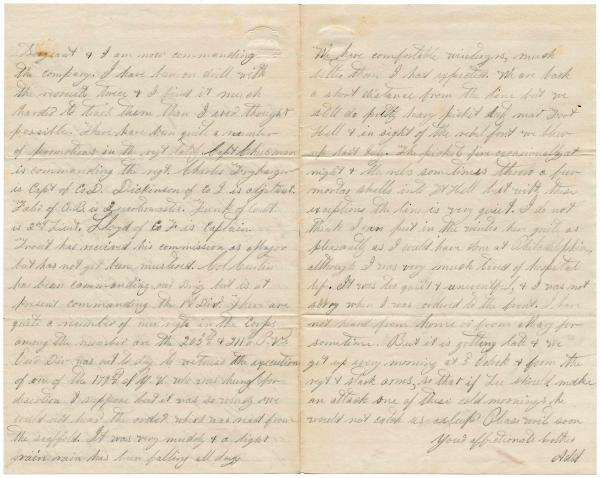 Sergeant & I am now commanding
the company. I have been on drill with
the recruits twice & I find it much
harder to teach them than I ever thought
possible. There have been quite a number
of promotions in the regt lately Capt
is commanding the regt. Charles
is Capt of Co D. Dickinson of Co I is adjutant.
of Co B is Quartermaster. Funk of Co
is 2nd Lieut, Lloyd of Co F is Captain
Trout has received his commission as Major
but has not yet been mustered. Col Curtin
has been commanding our brig but is at
present commanding the Div. There are
quite a number of new regts in the Corps
among the number are the 203rd & 211th P.V.
Our Div was out to day to witness the execution
of one of the 179th N.Y.V. who was hung for
desertion. I suppose but it was so windy we
could not hear the order which was read from
the scaffold. It was very muddy & a light
rain has been falling all day
We have comfortable much
better than I had expected. We are back
a short distance from the line but we
still do pretty heavy picket duty near Fort
Hell & in sight of the rebel fort we blew
up last July. The pickets fire occasionally at
night & the rebs sometimes throw a few
mortar shells into Ft Hell but with these
exceptions the line is very quiet. I do not
think I can put in the winter here quite as
pleasantly as I would have done at Philadelphia
although I was very much tired of hospital
life. It was too quiet & & I was not
sorry when I was ordered to the front. I have
not heard from home or from May for
sometime. But it is getting late & we
get up every morning at 5 o'clock & form the
regt & stack arms, so that if Lee should make
an attack one of these cold mornings, he
would not catch us asleep. Please write soon
Your affectionate brother
Add